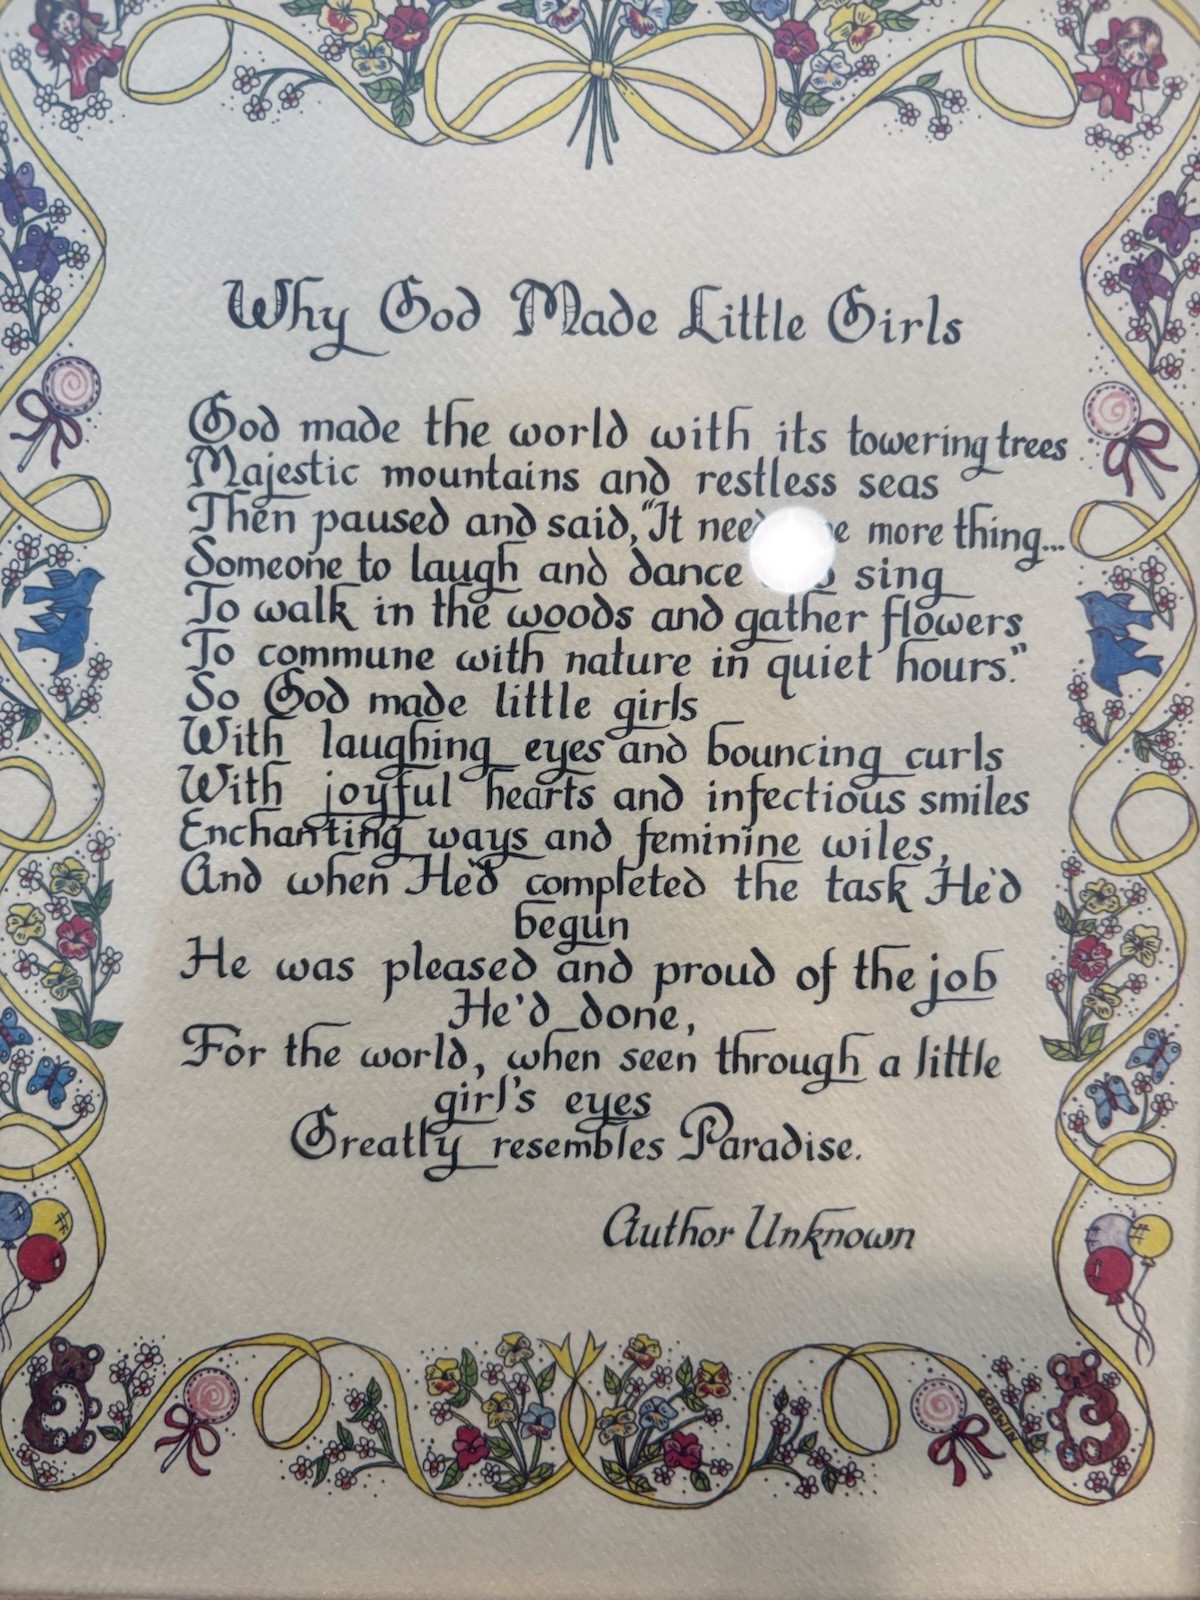 Why God Made Little Girls
God made the world with its towering trees
Majestic mountains and restless seas
Then paused and said, "It more thing...
Someone to laugh and dance sing
To walk in the woods and gather flowers
To commune with nature in quiet hours."
So God made little girls
With laughing eyes and bouncing curls
With joyful hearts and infectious smiles
Enchanting ways and feminine wiles,
And when He'd completed the task He'd
begun
He was pleased and proud of the job
He'd done,
For the world, when seen through a little
girl's eyes
Greatly resembles Paradise.
Author Unknown
GODWIN